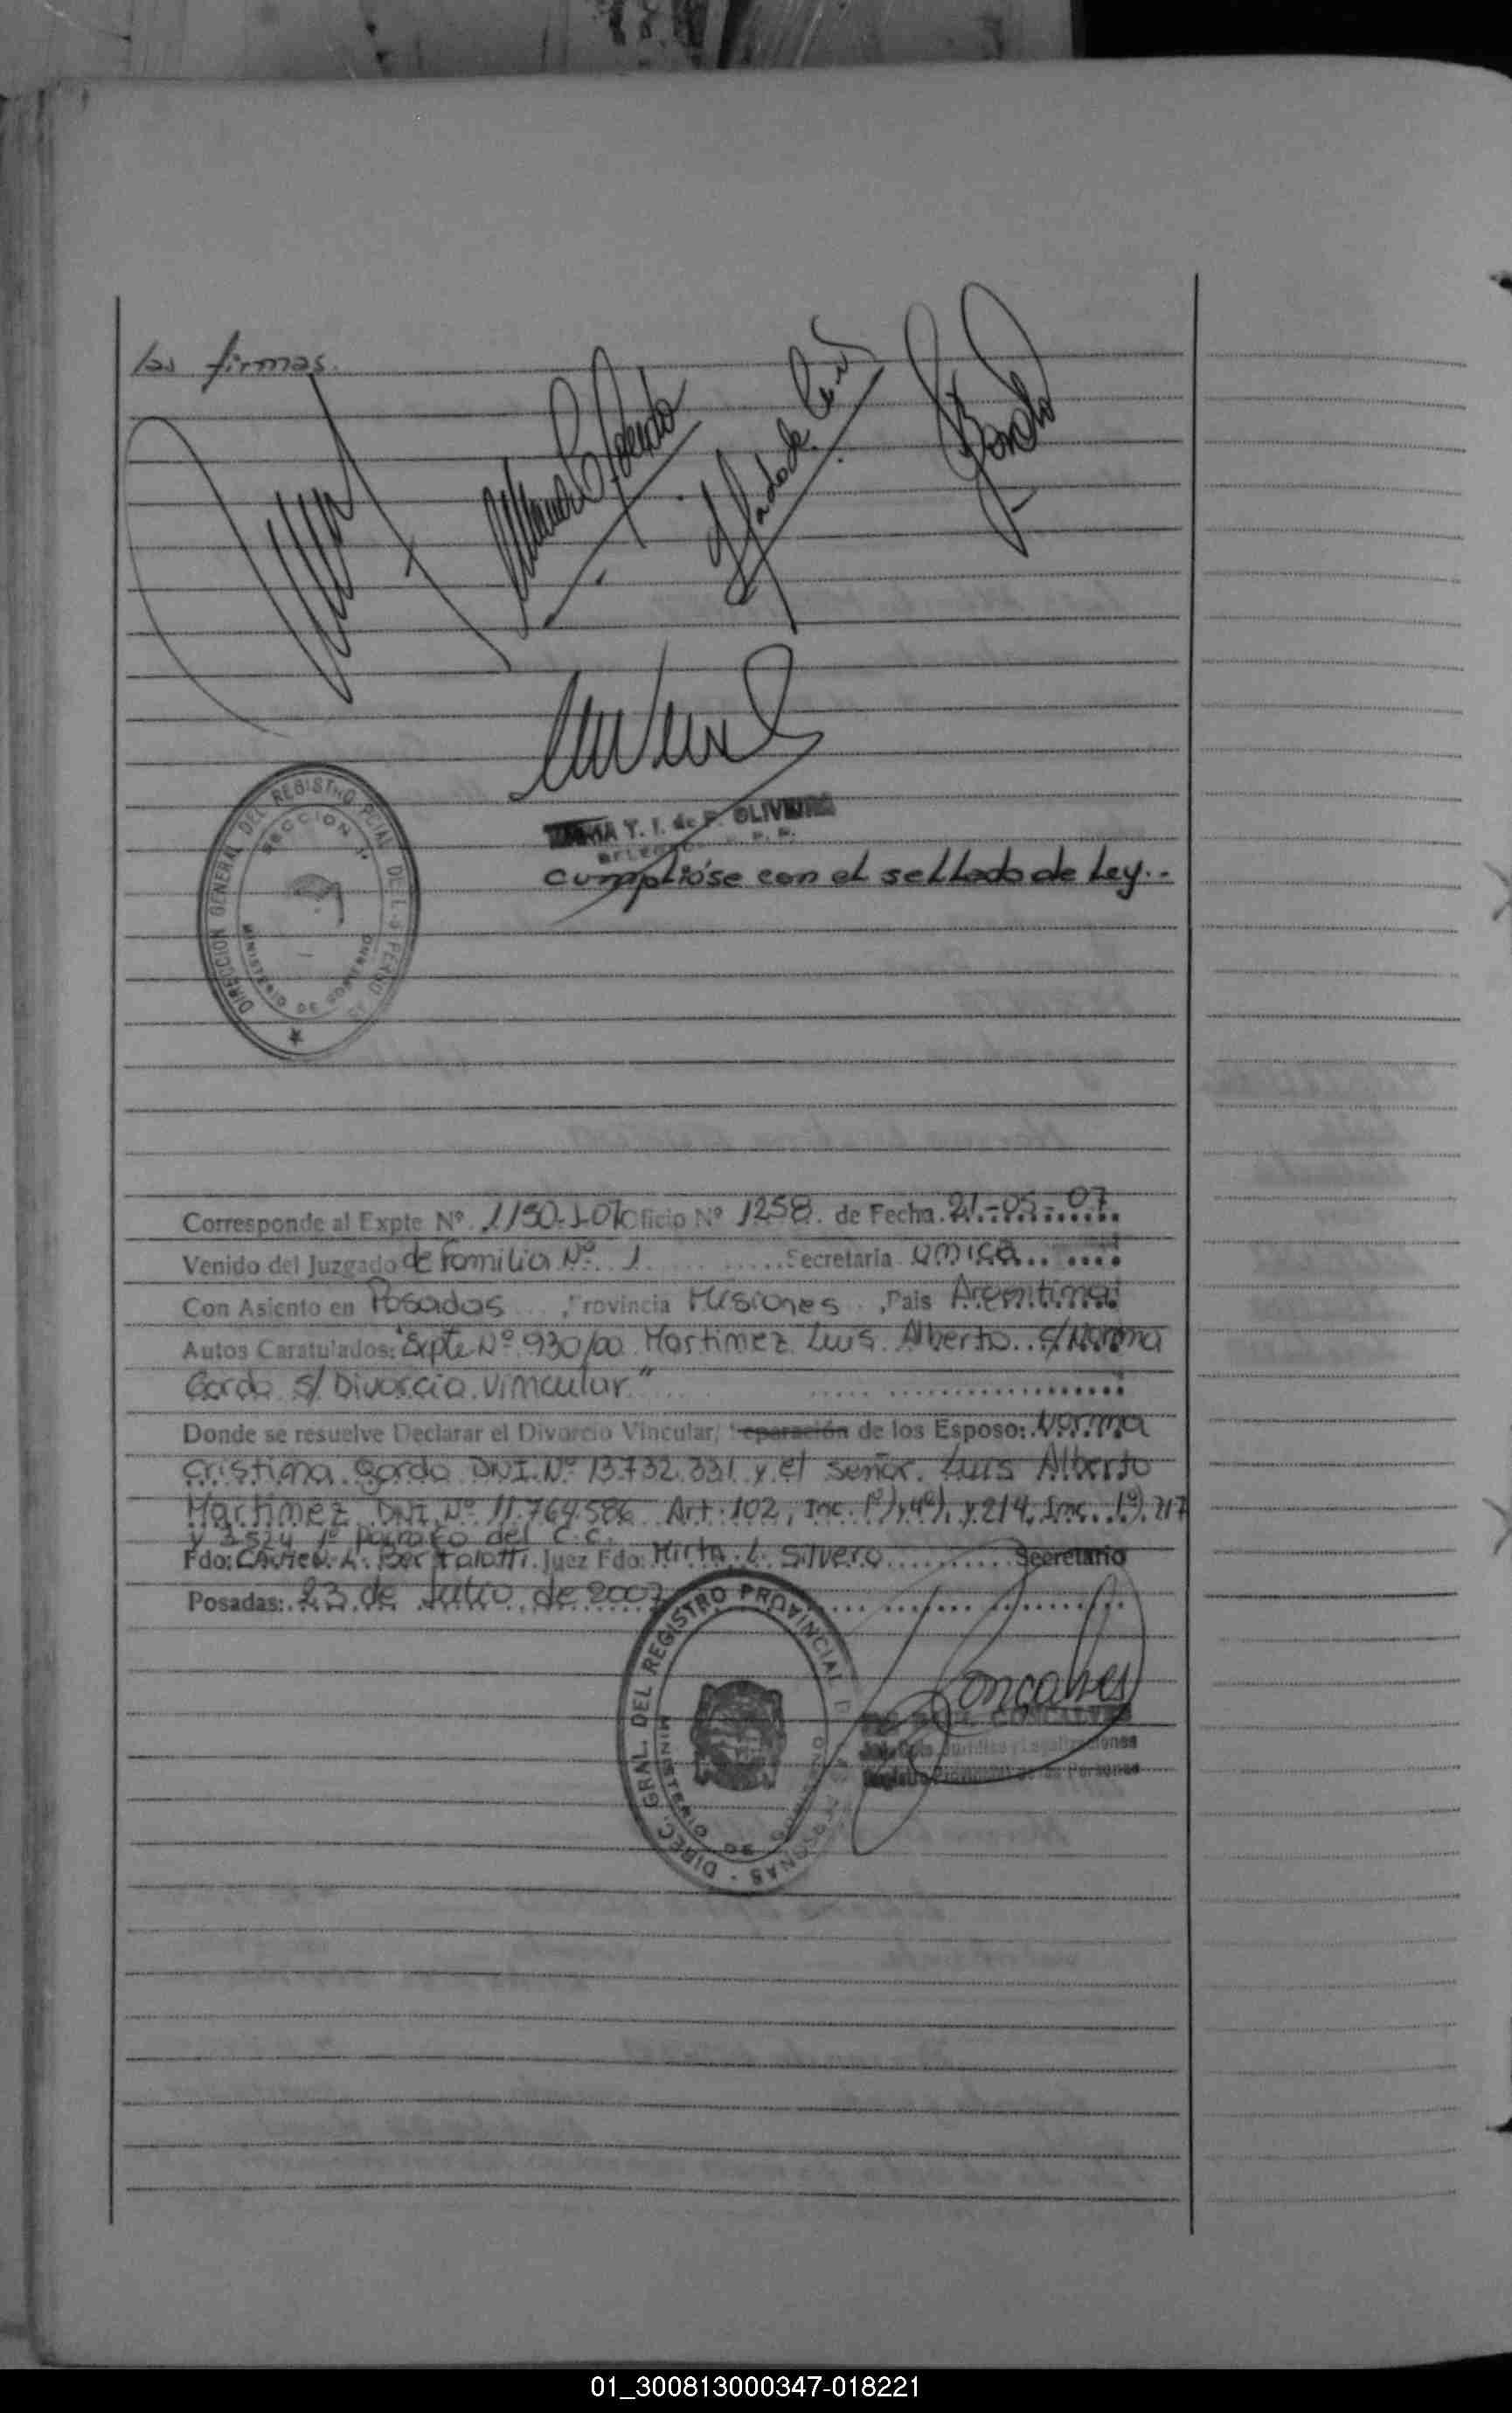 las firmas.
DIRECCION GENERAL DEL REGISTRO PCIAL DE L S PERSO AS
SECCION
MINISTERIO DE GOBIERNO
Y. I. de P. OLIVEIRA
Cumplióse con el sellado de Ley..
Corresponde al Expte Nº 1150-J-07 Oficio Nº 1258. de Fecha. 21-05-07
Venido del Juzgado de Familia Nº 1 Secretaria unica
Con Asiento en Posadas, Provincia Misiones, Pais Argentina
Autos Caratulados: "Expte Nº 930/00 Martinez Luis Alberto c/ Norma
Gorda s/ Divorcio vincular"
Donde se resuelve Declarar el Divorcio Vincular, Separación de los Esposo: Norma
Cristina Gorda DNI. Nº 13.732.331 y el señor Luis Alberto
Martinez DNI Nº 11.764.586 Art. 102, Inc. 1º) y 4º), y 214, Inc. 1º) 217
y 3.574 1º parrafo del C.C.
Fdo: A. Bertalotti. Juez Fdo: Mirta L. Silvero Secretario
Posadas: 23 de Julio de 2007
DIREC. GRAL. DEL REGISTRO PROVINCIAL DE LAS PERSONAS
MINISTERIO DE GOBIERNO
Goncalves
GONCALVES
Jurídica y Legalizaciones
Registro Provincial de las Personas
01_300813000347-018221